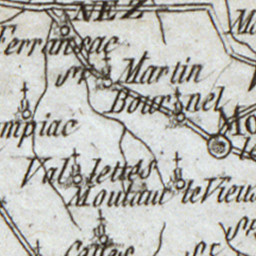 NEZ
Ferransac
St Martin
Boursnel
Mo
mpiac
le
Val lettes
Moulant
le Vieux
St